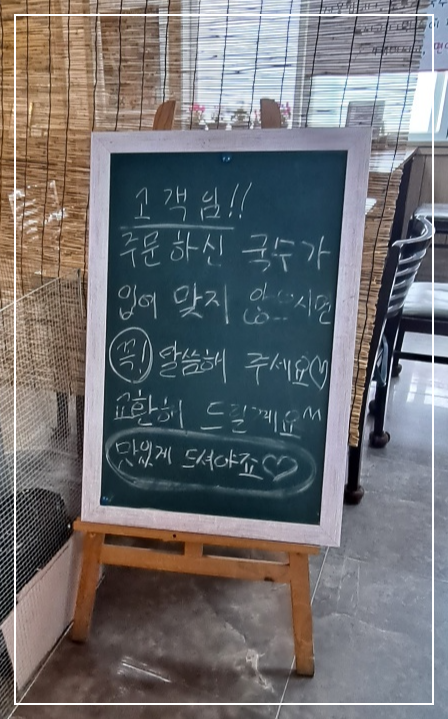 고객님!!
주문하신 국수가
입에 맞지 않으시면
꼭! 말씀해 주세요♡
교환해 드릴게요^^
맛있게 드셔야죠♡